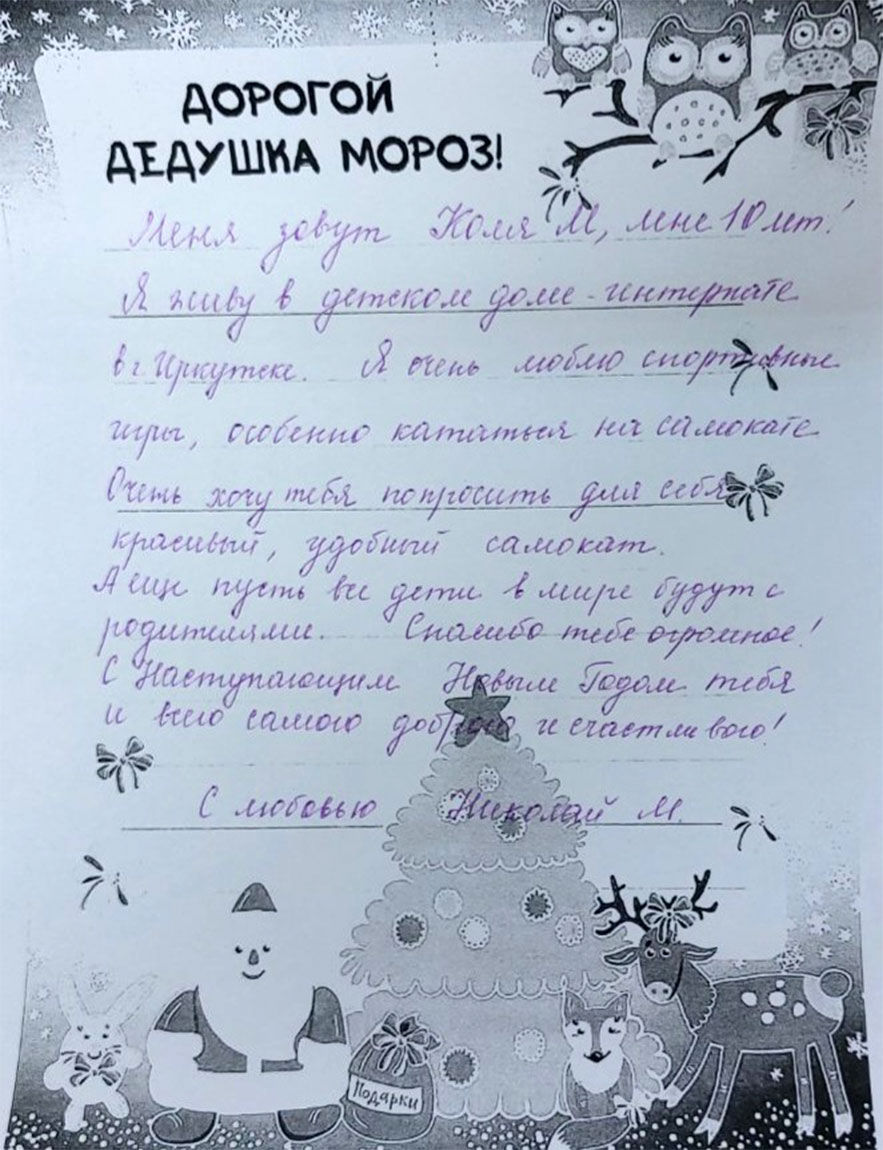 ДОРОГОЙ
ДЕДУШКА МОРОЗ!
Меня зовут Коля М, мне 10 лет!
Я живу в детском доме-интернате
в г. Иркутске. Я очень люблю спортивные
игры, особенно кататься на самокате
Очень хочу тебя попросить для себя
красивый, удобный самокат.
А еще пусть все дети в мире будут с
родителями. Спасибо тебе огромное!
С Наступающим Новым Годом тебя
и всего самого доброго и счастливого!
С любовью Николай М.
Подарки